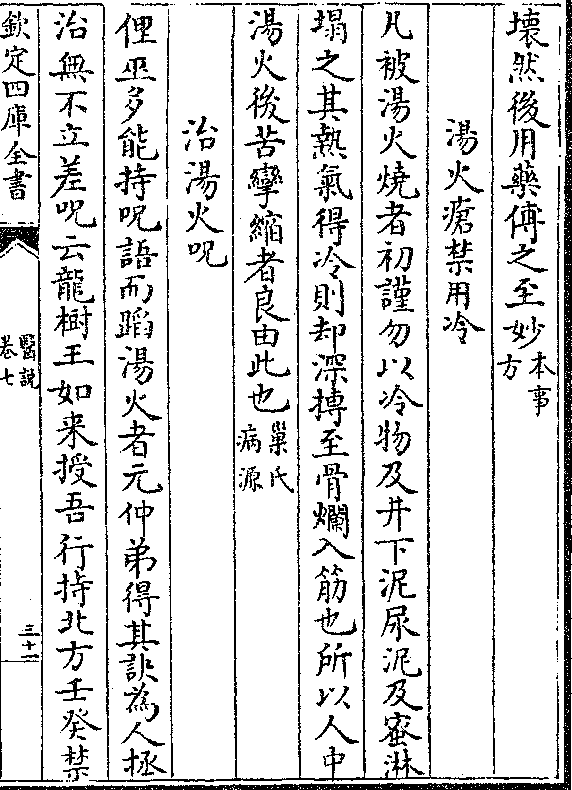 壞然後用藥傅之至妙本事方
湯火瘡禁用冷
凡被湯火燒者初謹勿以冷物及井下泥尿泥及蜜淋
塌之其熱氣得冷則却深搏至骨爛入筋也所以人中
湯火後苦攣縮者良由此也巢氏病源
治湯火呪
俚巫多能持呪語而蹈湯火者元仲弟得其訣為人拯
治無不立差呪云龍樹王如来授吾行持北方壬癸禁
欽定四庫全書
醫說
卷七
三十一